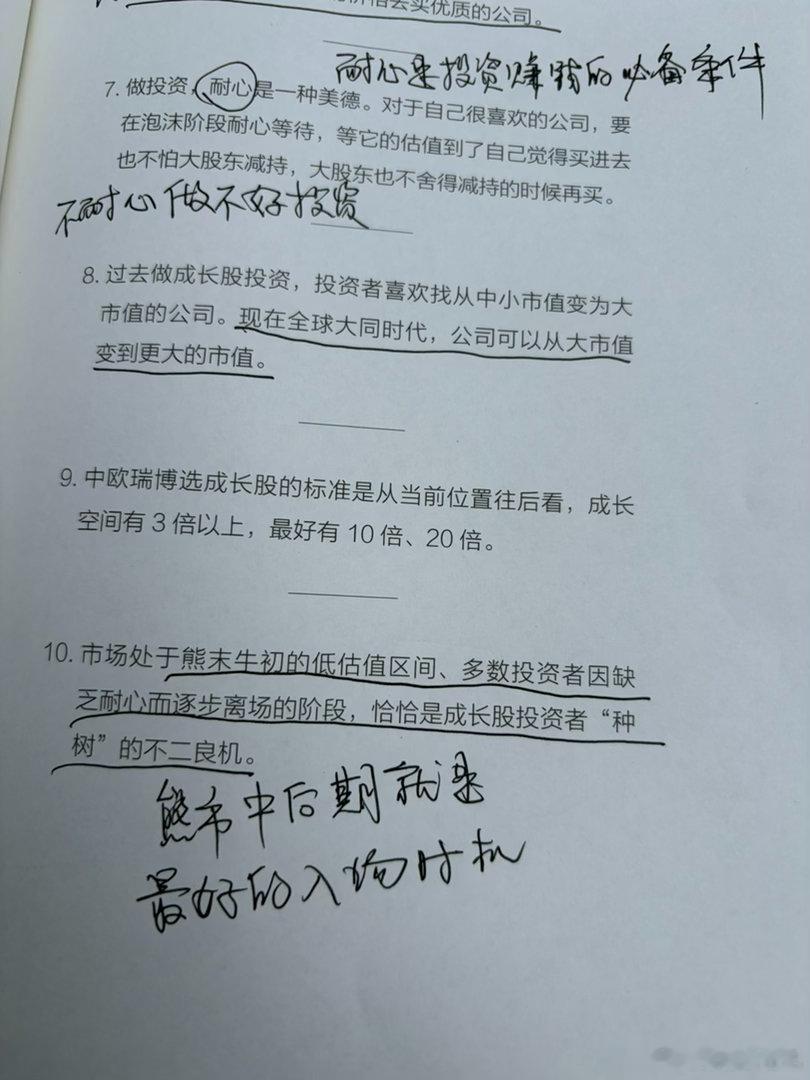 价格去买优质的公司。
耐心是投资赚钱的必备条件
7. 做投资，耐心是一种美德。对于自己很喜欢的公司，要
在泡沫阶段耐心等待，等它的估值到了自己觉得买进去
也不怕大股东减持，大股东也不舍得减持的时候再买。
不耐心做不好投资
8. 过去做成长股投资，投资者喜欢找从中小市值变为大
市值的公司。现在全球大同时代，公司可以从大市值
变到更大的市值。
9. 中欧瑞博选成长股的标准是从当前位置往后看，成长
空间有 3 倍以上，最好有 10 倍、20 倍。
10. 市场处于熊末牛初的低估值区间、多数投资者因缺
乏耐心而逐步离场的阶段，恰恰是成长股投资者“种
树”的不二良机。
熊市中后期就是
最好的入场时机